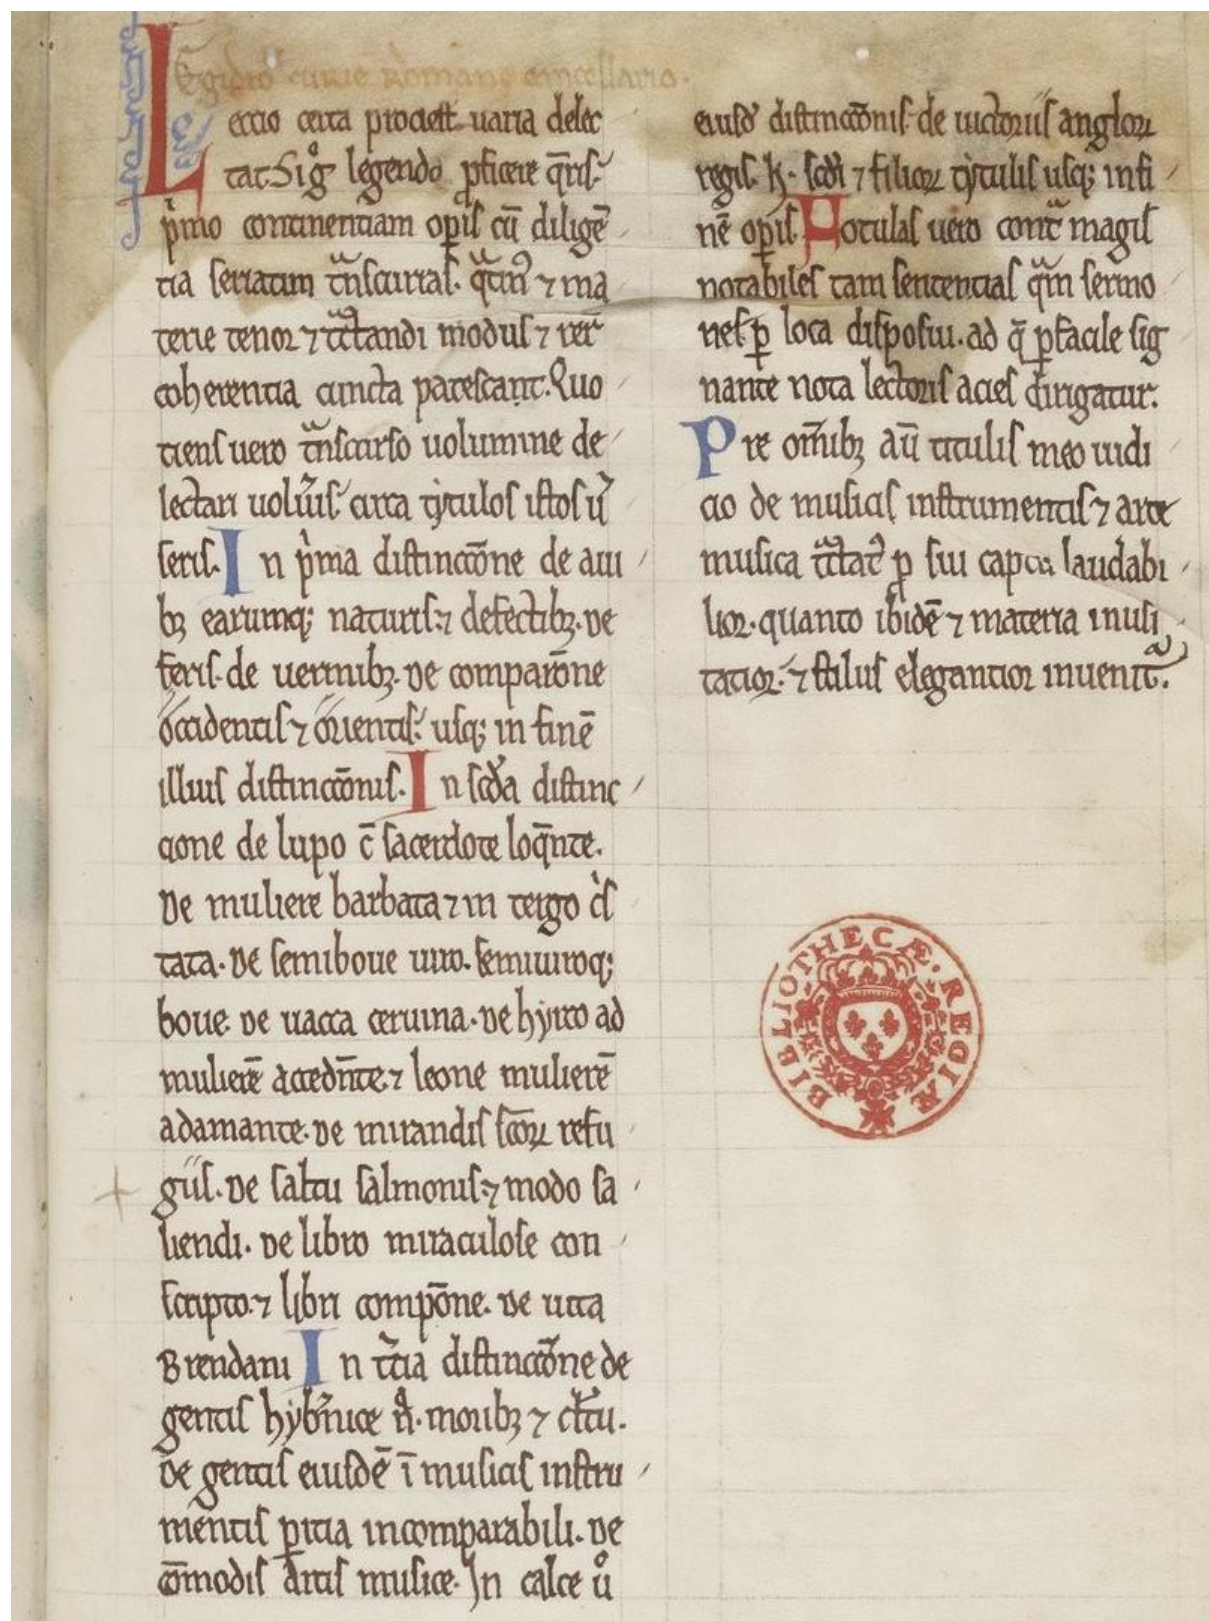 Egidio curie Romane cancellario.
Lectio certa prodest. uaria delec
tat. Sig̊ legendo ꝓficere q̄ris.
pͥmo continentiam oꝑis cū diligē
tia seriatim tᷓnscurras. qᷓtin᷒ ⁊ ma
terie tenor ⁊ tᷓctandi modus ⁊ rer̄
coherentia cuncta patescant. Quo
tiens uero tᷓnscurso uolumine de
lectari uolu̾is. circa tytulos istos u̾
seris. In pͥma distinccōne de aui
bꝫ earumqꝫ naturis. ⁊ defectibꝫ. De
feris. de uermibꝫ. De comparōne
occidentis ⁊ orientis. usqꝫ in finē
illius distinccōnis. In scd̾a distinc
cione de lupo c̄ sacerdote loq̄nte.
De muliere barbata ⁊ in tergo cͥs
tata. De semiboue uiro. semiuiroqꝫ
boue. De uacca ceruina. De hyrco ad
mulierē accedn̄te. ⁊ leone mulierē
adamante. De mirandis sc̄oꝝ refu
giis. De saltu salmonis. ⁊ modo sa
liendi. De libro miraculose con
scripto. ⁊ libri compōne. De uita
Brendani In t̾cia distinccōne de
gentis hyb̾nice n̊. moribꝫ ⁊ cl̾tu.
De gentis eiusdē ī musicis instru
mentis ꝑitia incomparabili. De
cōmodis artis musice. In calce ů
eiusd̾ distinccōnis. de uictoriis angloꝝ
regis. h. scd̾i ⁊ filioꝝ tytulis usqꝫ in fi
nē oꝑis. Notulas uero contᷓ magis
notabiles tam sententias qᷓm sermo
nes. ꝑ loca disposui. ad q̄ ꝑfacile sig
nante nota lectoris acies dirigatur.
Pre om̄ibꝫ aū titulis meo iudi
cio de musicis instrumentis ⁊ arte
musica tᷓctat᷒ ꝑ sui captu laudabi
lior. quanto ibidē ⁊ materia inusi
tatior. ⁊ stilus elegantior inuenitᷓ.
BIBLIOTHECÆ REGIÆ